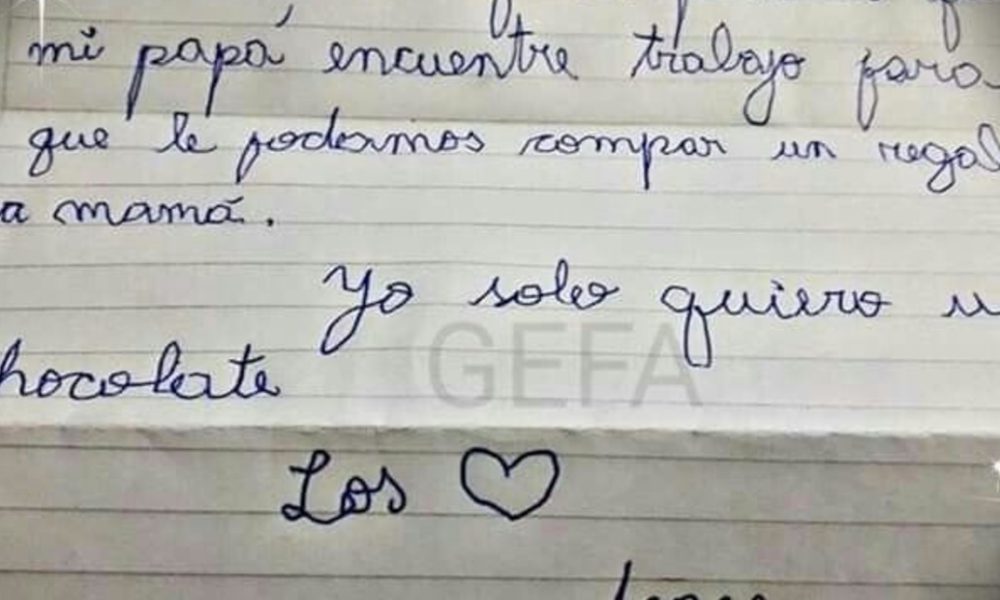 mi papá encuentre trabajo para
que le podermos compar un regal
a mamá.
Yo solo quiero u
hocolate
GEFA
Los ♡